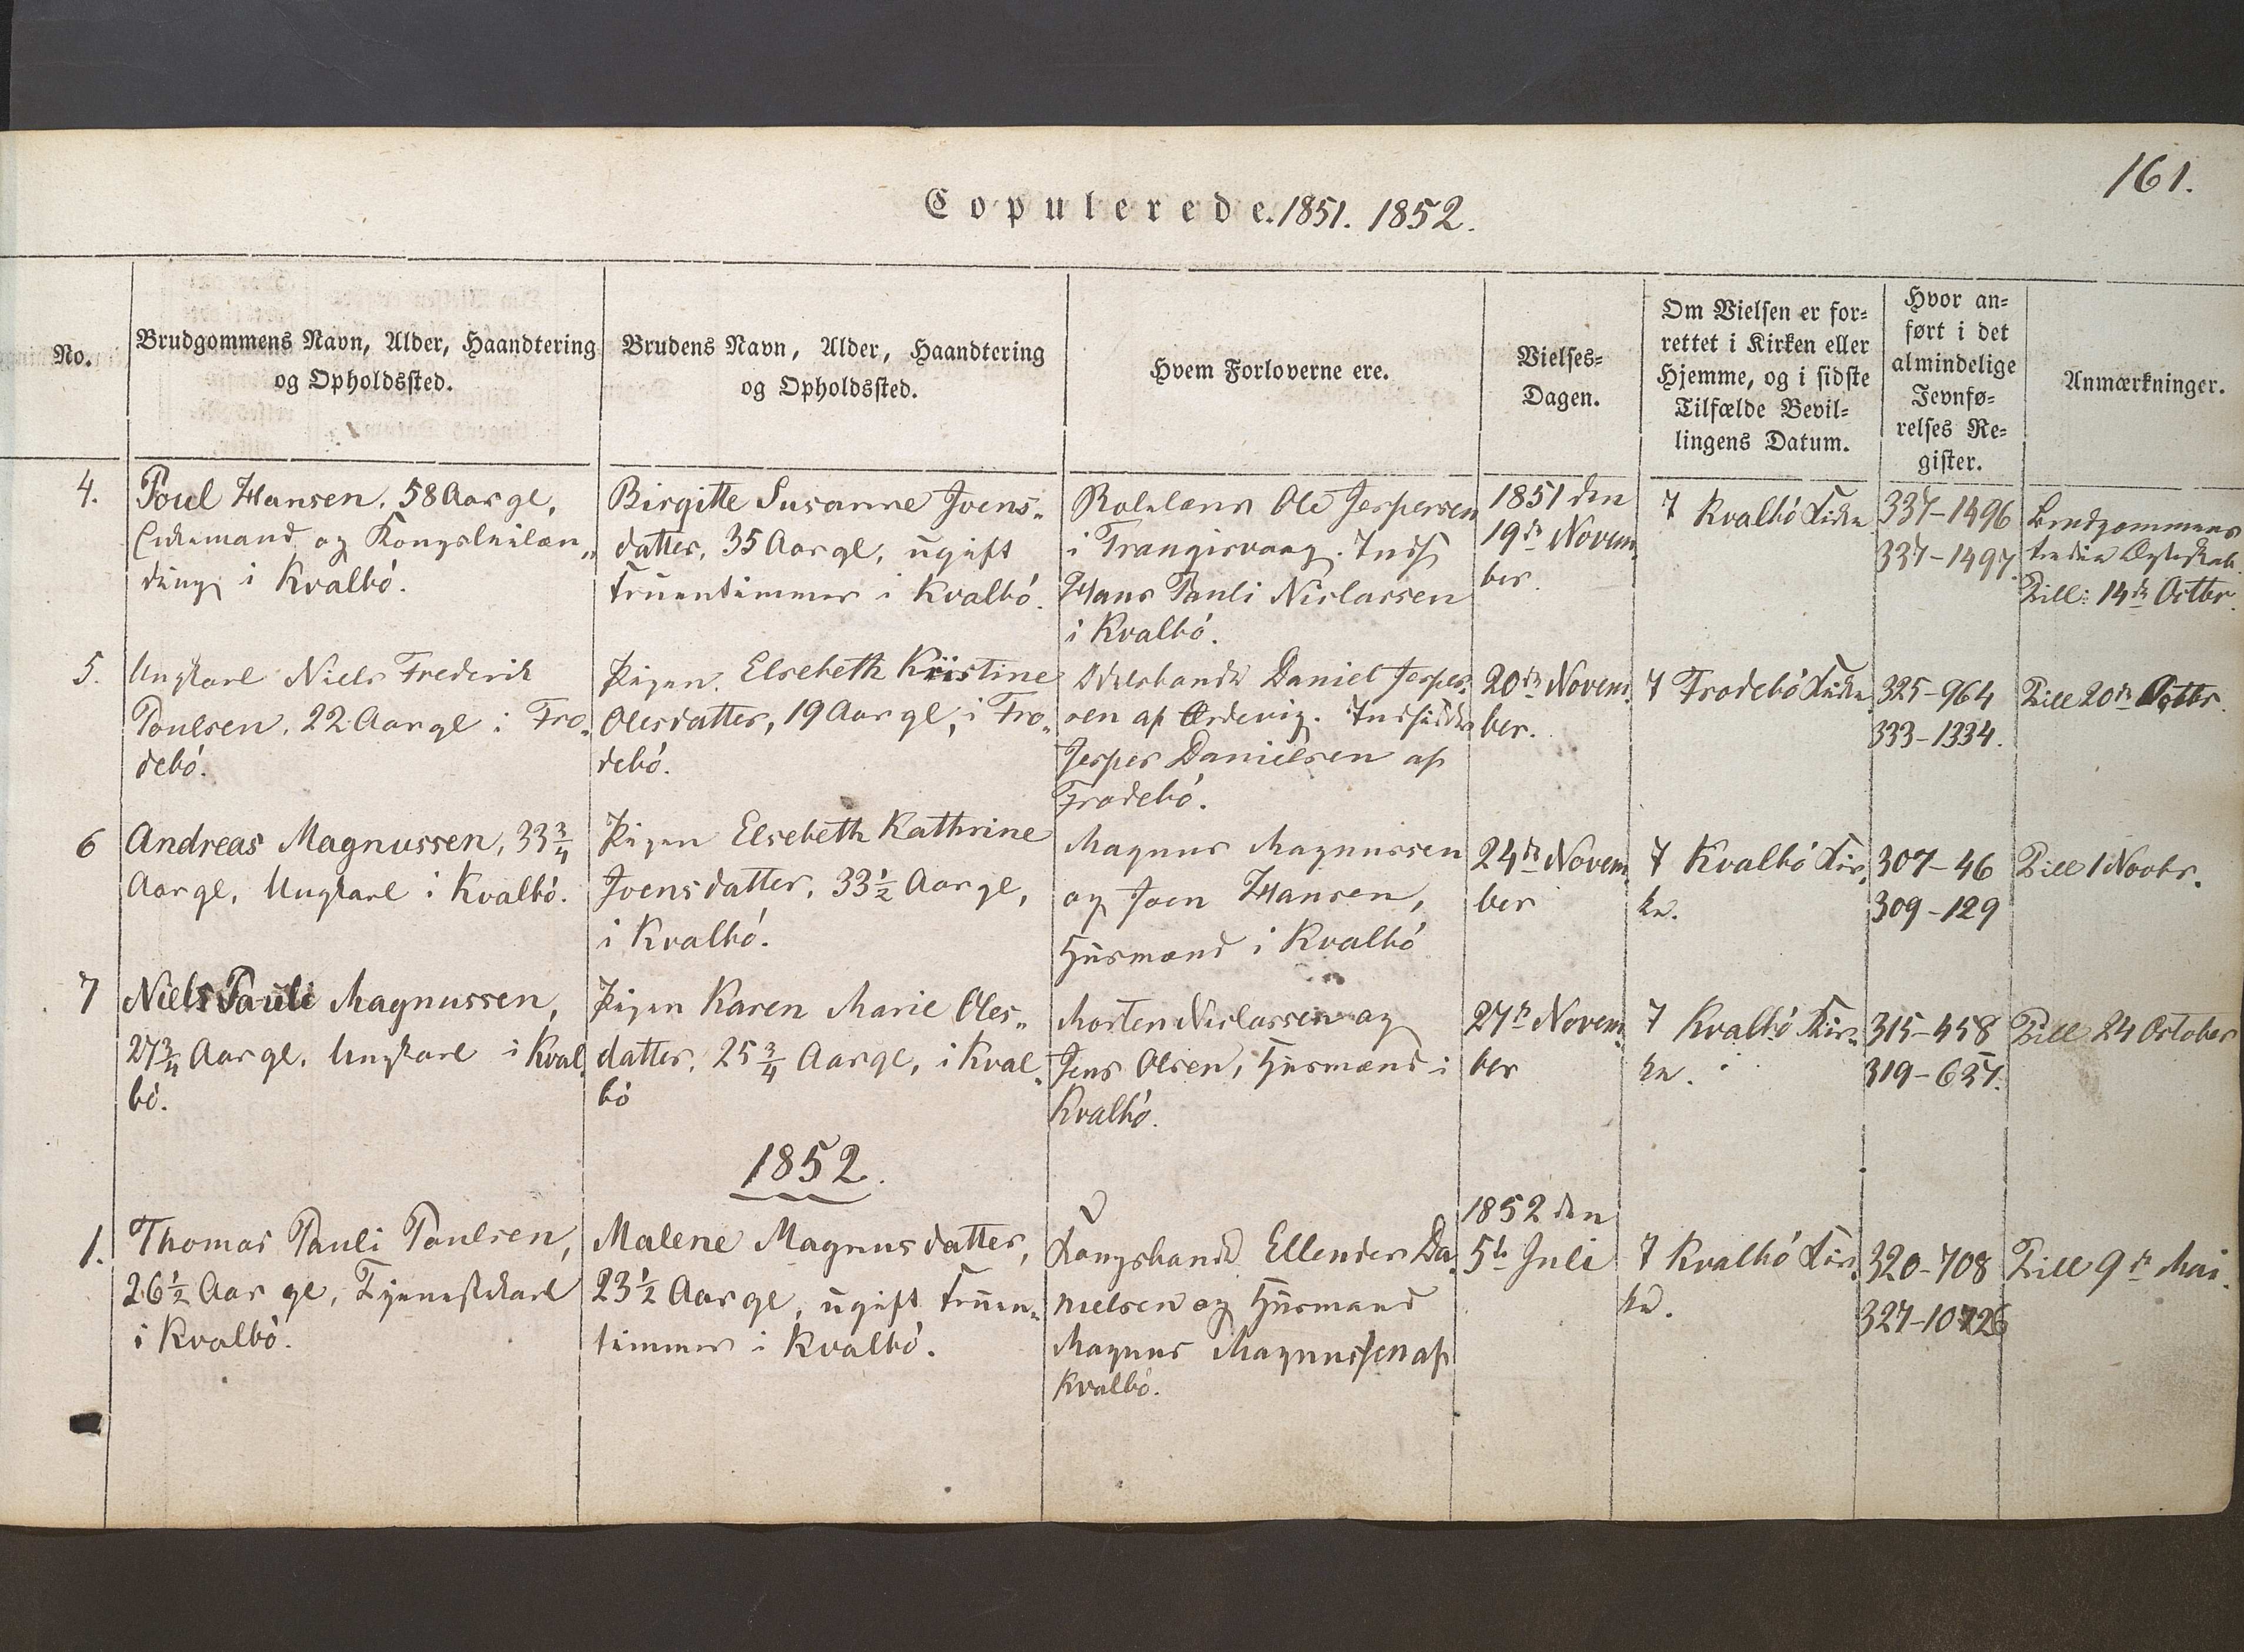 161.
Copulerede. 1851. 1852.
No.
Brudgommens Navn, Alder, Haandtering
og Opholdssted.
Brudens Navn, Alder, Haandtering
og Opholdssted.
Hvem Forloverne ere.
Vielses-
Dagen.
Om Vielsen er for-
rettet i Kirken eller
Hjemme, og i sidste
Tilfælde Bevil-
lingens Datum.
Hvor an-
ført i det
almindelige
Jevnfø-
relses Re-
gister.
Anmærkninger.
4.
Poul Hansen, 58 Aar gl,
Enkemand og Kongsleilæn-
ding i Kvalbö.
Birgitte Susanne Joens-
datter, 35 Aar gl, ugift
Fruentimmer i Kvalbö.
Ole Jespersen
i Trangisvaag. Inds
Hans Pauli Niclassen
i Kvalbö.
1851 den
19de Novem-
ber.
I Kvalbö Kirke
337-1496
337-1497.
Brudgommens
tredie Ægteskab.
Till: 14de Octbr.
5.
Ungkarl Niels Frederik
Poulsen, 22 Aar gl i Fro-
debö.
Pigen Elsebeth Kristine
Olesdatter, 19 Aar gl, i Fro-
debö.
Odelsbonde Daniel Jesper-
sen af Ördevig. Indsidder
Jesper Danielsen af
Frodebö.
20de Novem-
ber.
I Frodebö Kirke
325-964
333-1334.
Till 20de Octbr.
6
Andreas Magnussen, 33 3/4
Aar gl, Ungkarl i Kvalbö.
Pigen Elsebeth Kathrine
Joensdatter, 33 1/2 Aar gl,
i Kvalbö.
Magnus Magnussen
og Joen Hansen,
Husmænd i Kvalbö
24de Novem-
ber
I Kvalbö Kir-
ke.
307-46
309-129
Till 1 Novbr.
7
Niels Pauli Magnussen,
27 3/4 Aar gl. Ungkarl i Kval-
bö.
Pigen Karen Marie Oles-
datter, 25 3/4 Aar gl, i Kval-
bö
Morten Niclassen og
Jens Olsen, Husmænd i
Kvalbö.
27de Novem-
ber
I Kvalbö Kir-
ke.
315-458
319-637.
Till 24 October
1852.
1.
Thomas Pauli Poulsen,
26 1/2 Aar gl, Tjenestekarl
i Kvalbö.
Malene Magnusdatter,
23 1/2 Aar gl, ugift Fruen-
timmer i Kvalbö.
Kongsbonde Ellender Da-
nielsen og Husmand
Magnus Magnussen af
Kvalbö.
1852 den
5te Juli
I Kvalbö Kir-
ke.
320-708
Till 9de Mai.